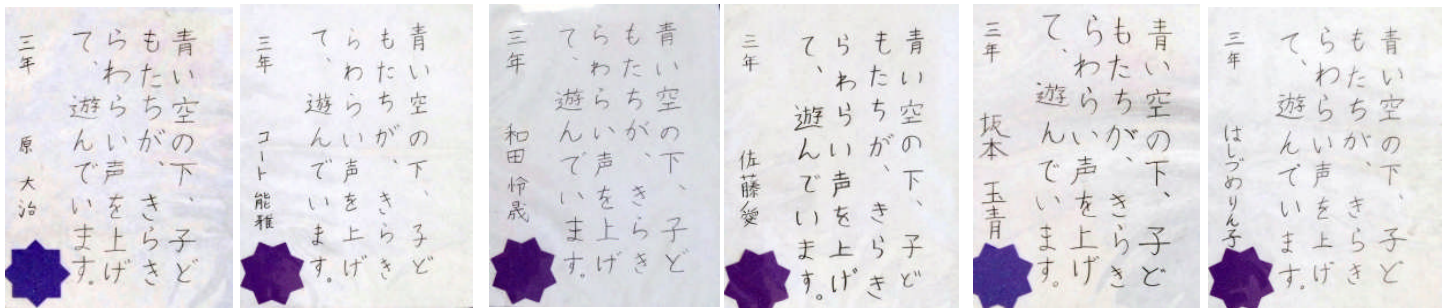 青い空の下、子ど
もたちが、きらき
らわらい声を上げ
て、遊んでいます。
三年 原 大治
青い空の下、子ど
もたちが、きらき
らわらい声を上げ
て、遊んでいます。
三年 コート能雅
青い空の下、子ど
もたちが、きらき
らわらい声を上げ
て、遊んでいます。
三年 和田怜晟
青い空の下、子ど
もたちが、きらき
らわらい声を上げ
て、遊んでいます。
三年 佐藤愛
青い空の下、子ど
もたちが、きらき
らわらい声を上げ
て、遊んでいます。
三年 坂本 玉青
青い空の下、子ど
もたちが、きらき
らわらい声を上げ
て、遊んでいます。
三年 はしづめりん子